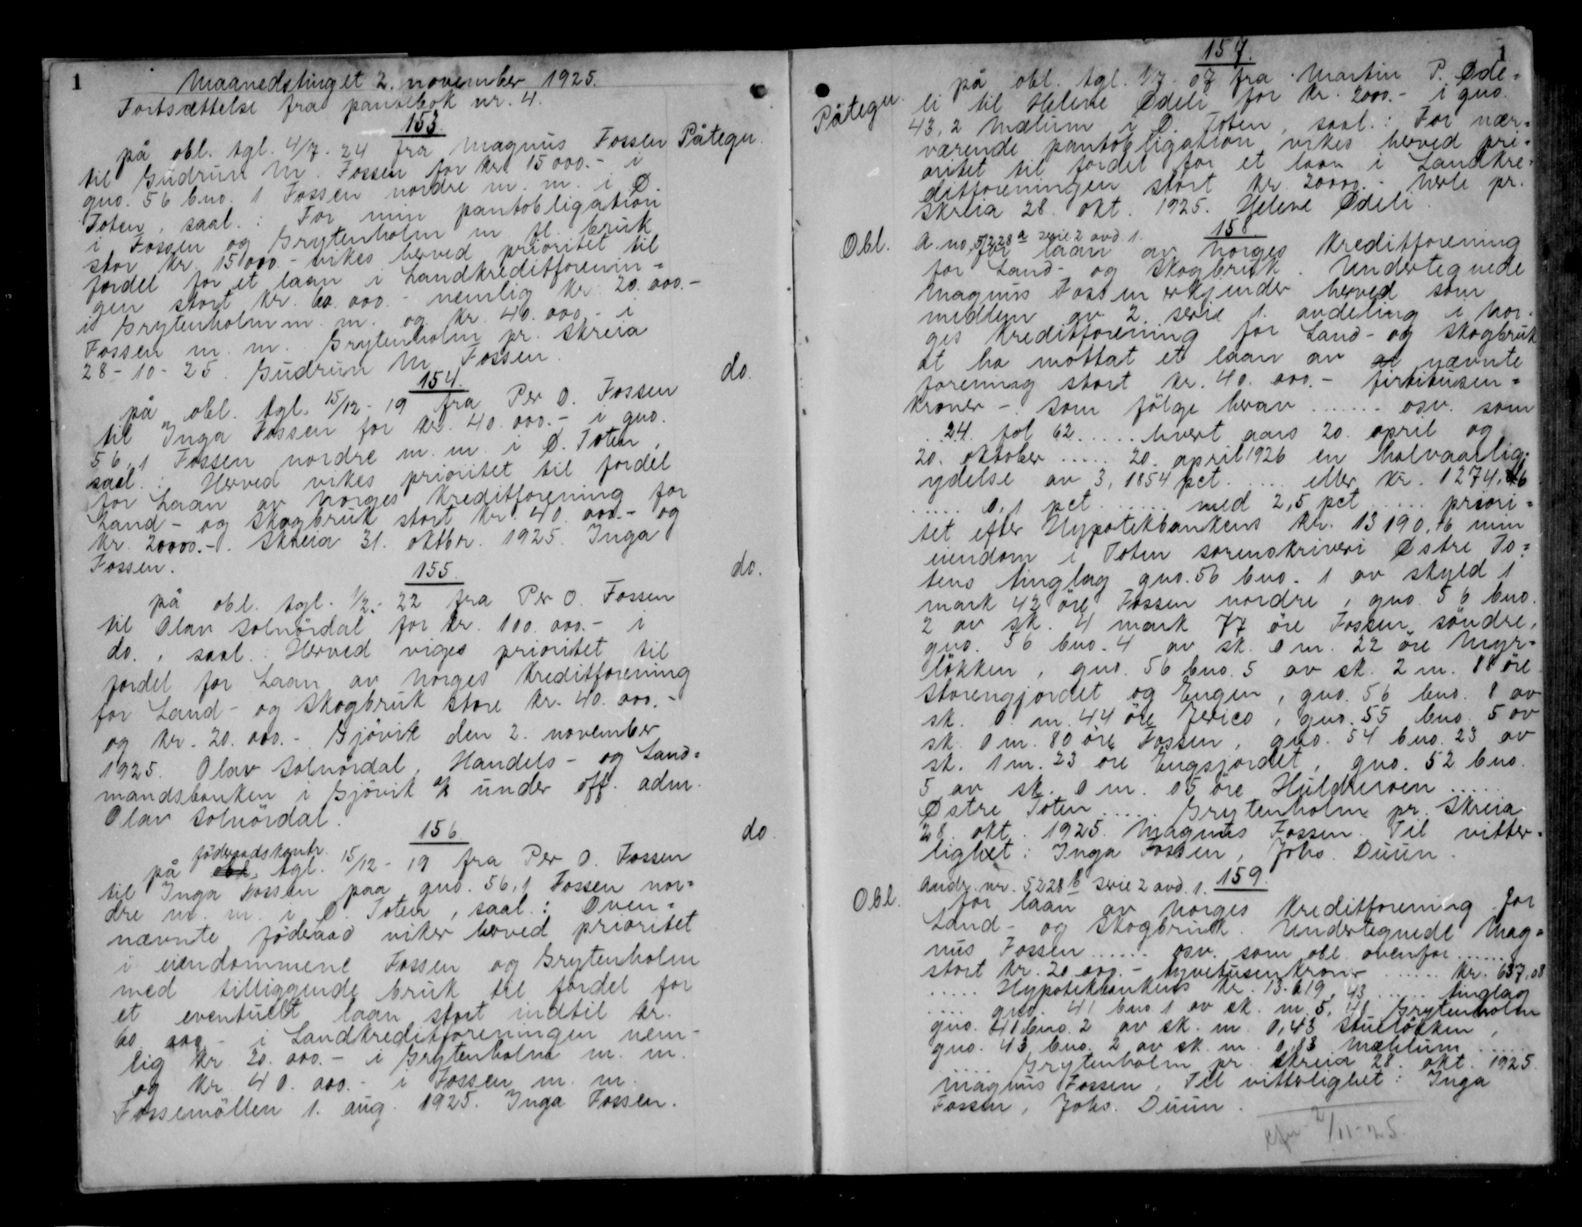 1
Maanedstinget 2. november 1925.
Fortsættelse fra pantebok nr. 4.
153
Påtegn.
på obl. tgl. 4/7. 24 fra Magnus Fossen
til Gudrun M. Fossen for kr. 15 000.- i
gno. 56 bno. 1 Fossen nordre m. m. i Ø.
Toten, saal.: For min pantobligation
i Fossen og Grytenholm m. fl. bruk
stor kr. 15 000.- vikes herved prioritet til
fordel for et laan i Landkreditforenin=
gen stort kr. 60. 000.- nemlig kr. 20. 000.-
i Grytenholm m. m. og kr. 40. 000.- i
Fossen m. m. Grytenholm pr. Skreia
28-10-25. Gudrun M. Fossen.
154.
do.
på obl. tgl. 15/12-19 fra Per O. Fossen
til Inga Fossen for kr. 40. 000.- i gno.
56,1 Fossen nordre m. m. i Ø. Toten,
saal.: Herved vikes prioritet til fordel
for Laan av Norges Kreditforening for
Land- og Skogbruk stort kr. 40 000.- og
kr. 20000.-. Skreia 31. oktbr. 1925. Inga
Fossen.
155
do.
på obl. tgl. 1/2.- 22 fra Per O. Fossen
til Olav Solnørdal for kr. 100. 000.- i
do., saal.: Herved viges prioritet til
fordel for Laan av Norges Kreditforening
for Land- og Skogbruk store kr. 40. 000.-
og kr. 20. 000.- Gjövik den 2. november
1925. Olav Solnördal, Handels- og Land=
mandsbanken i Gjövik a/s under off. adm.
Olav Solnördal.
156.
do.
föderaadskontr.
på obl. tgl. 15/12-19 fra Per O. Fossen
til Inga Fossen paa gno. 56,1 Fossen nor=
dre m. m. i Ø. Toten, saal.: Oven=
nævnte föderaad viker herved prioritet
i eiendommene Fossen og Grytenholm
med tilliggende bruk til fordel for
et eventuelt laan stort indtil kr.
60 000.- i Landkreditforeningen nem-
lig kr 20. 000.- i Grytenholm m. m.
og kr. 40. 000.- i Fossen m. m.
Fossemöllen 1. aug. 1925. Inga Fossen.
1
157.
Påtegn.
på obl. tgl. 1/7. 07 fra Martin P. Øde=
li til Helene Ødeli for kr. 2000.- i gno.
43,2 Mælum i Ø. Toten, saal.: For nær=
værende pantobligation vikes herved pri=
oritet til fordel for et laan i Landkre=
ditforeningen stort kr. 20000.-
Skreia 28. okt. 1925. Helene Ødeli.
158
Obl.
A. no. 5228 a serie 2 avd. 1.
for laan av Norges Kreditforening
for Land- og Skogbruk. Undertegnede
Magnus Fossen erkjender herved som
medlem av 2. serie 1. avdeling i Nor-
ges Kreditforening for Land- og Skogbruk
at ha mottat et laan av nævnte
forening stort kr. 40. 000.- firtitusen=
kroner-. Som fölge herav ...... osv. som
24. fol 62 ..... hvert aars 20. april og
20. oktober ..... 20. april 1926 en halvaarlig
ydelse av 3,1854 pct. .... eller kr. 1274,16
..... 0,1 pct ...... med 2,5 pct ..... priori=
tet efter Hypotekbankens kr. 13 190,76 min
eiendom i Toten sorenskriveri Østre To=
tens tinglag gno. 56 bno. 1 av skyld 1
mark 42 öre Fossen nordre, gno. 56 bno.
2 av sk. 4 mark 77 öre Fossen söndre,
gno. 56 bno. 4 av sk. 0 m. 22 öre Myr=
lökken, gno. 56 bno. 5 av sk. 2 m. 88 öre
Storengjordet og Engen, gno. 56 bno. 8 av
sk. 0 m. 44 öre Jerico, gno. 55 bno. 5 av
sk. 0 m. 80 öre Fossen, gno. 54 bno. 23 av
sk. 1 m. 23 öre Engsjordet, gno. 52 bno.
5 av sk. 0 m. 05 öre Huldremoen ......
Østre Toten ..... Grytenholm pr. Skreia
28. okt. 1925. Magnus Fossen. Til vitter=
lighet: Inga Fossen, Johs. Duun.
159.
Obl.
Andr. nr. 5228 b serie 2 avd. 1.
for laan av Norges Kreditforening for
Land- og Skogbruk. Undertegnede Mag=
nus Fossen ...... osv. som obl. ovenfor ......
stort kr. 20. 000.- tyvetusenkroner ...... kr. 637,08
..... Hypotekbankens kr. 13.619,43 ..... tinglag
.... gno. 41 bno 1 av sk. m. 5,41 Grytenholm
gno. 41 bno. 2 av sk. m. 0,43 Stuelökken,
gno. 43 bno. 2 av sk. m. 0,83 Mæhlum .....
.... Grytenholm pr. Skreia 28. okt. 1925.
Magnus Fossen. Til vitterlighet: Inga
Fossen, Johs. Duun.
2/11-25.